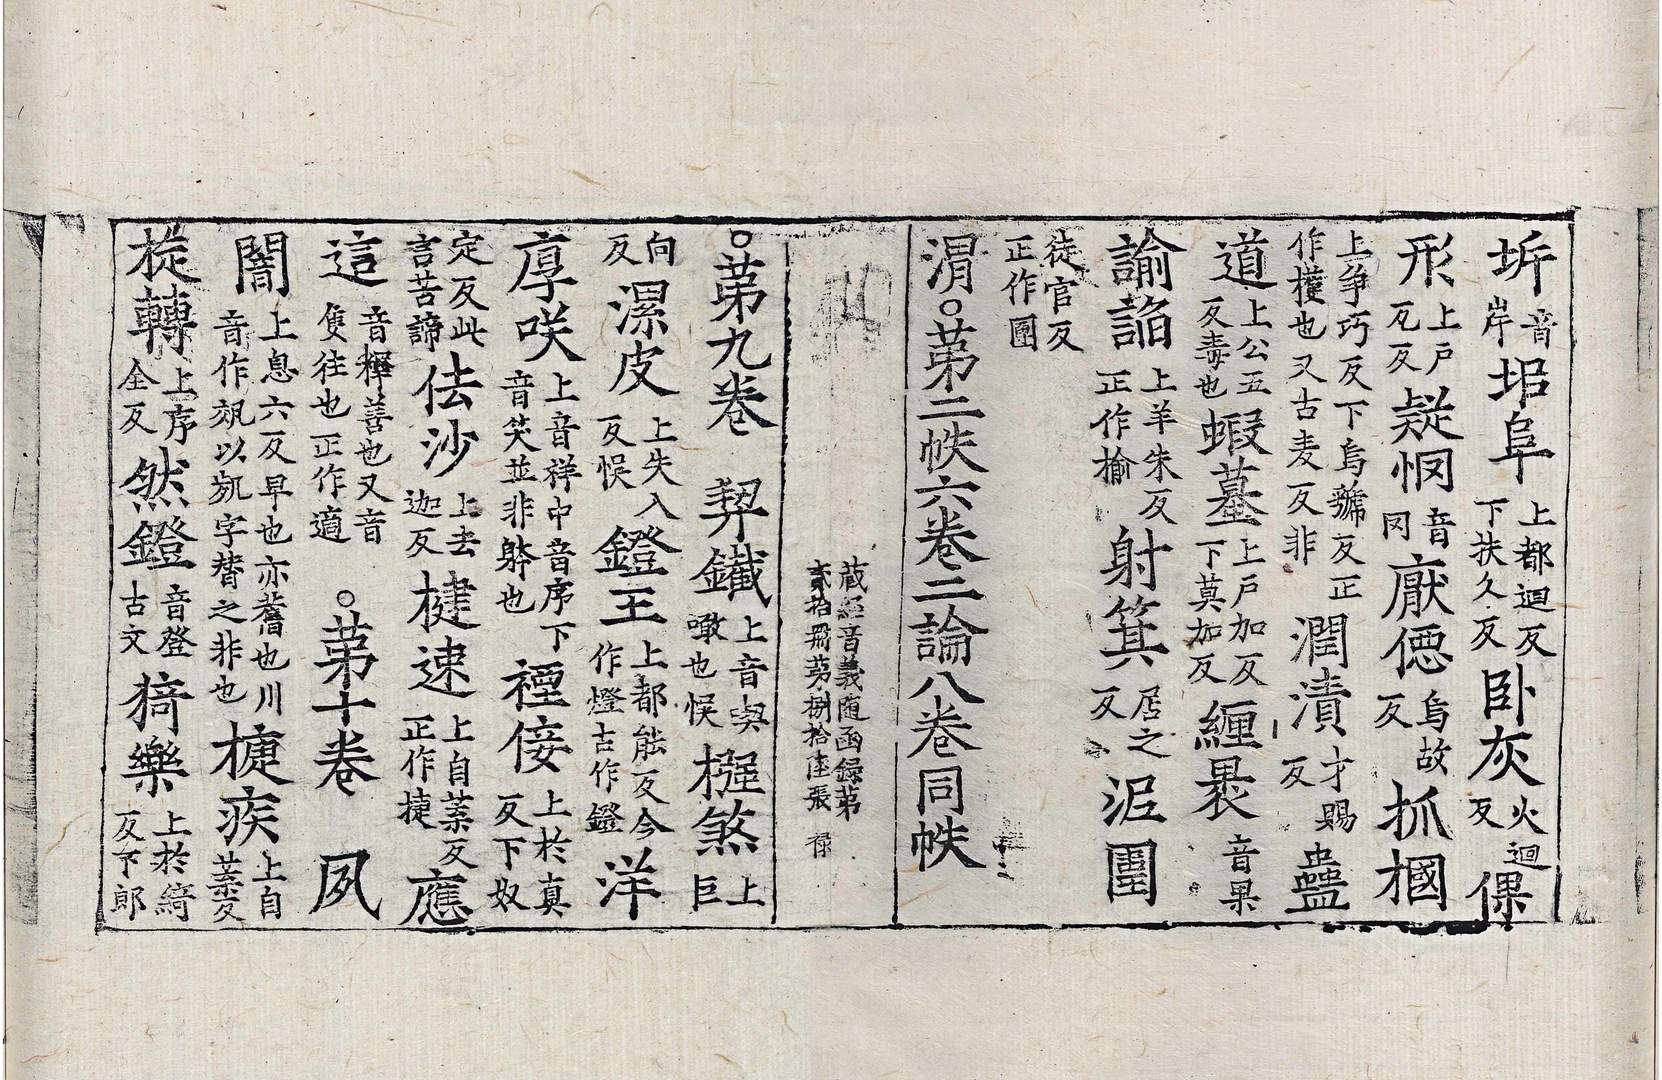 圻音岸 坘阜上都迴反下扶久反 卧灰火迴反 倮
形上戸瓦反 疑惘音罔 厭偬烏故反 抓摑
上争巧反下烏虢反正作擭也又古麦反非 潤漬才賜反 蠱
道上公五反毒也 蝦蟇上戸加反下莫加反 纏褁音果
諭諂上羊朱反正作揄 射箕居之反 泥圕
徒官反正作團
涓○第二帙六卷二論八卷同帙
蔵經音義随函録苐貳拾冊苐捌拾陸張 禄
○苐九卷 𢍆鐵上音喫噉也悮 㮣煞上巨
向反 漯皮上失入反悮 鐙王上都能反今作燈古作鐙 洋
庠咲上音祥中音序下音笑並非躰也 禋倿上於真反下奴
定反此言苦諦 佉沙上去迦反 楗速上自葉反正作捷 應
這音釋善也又音隻往也正作適 ○苐十卷 夙
闇上息六反早也亦蓿也川音作夙以夙字替之非也 㨗疾上自葉反
㨬轉上序全反 然鐙音登古文 猗樂上於綺反下郎